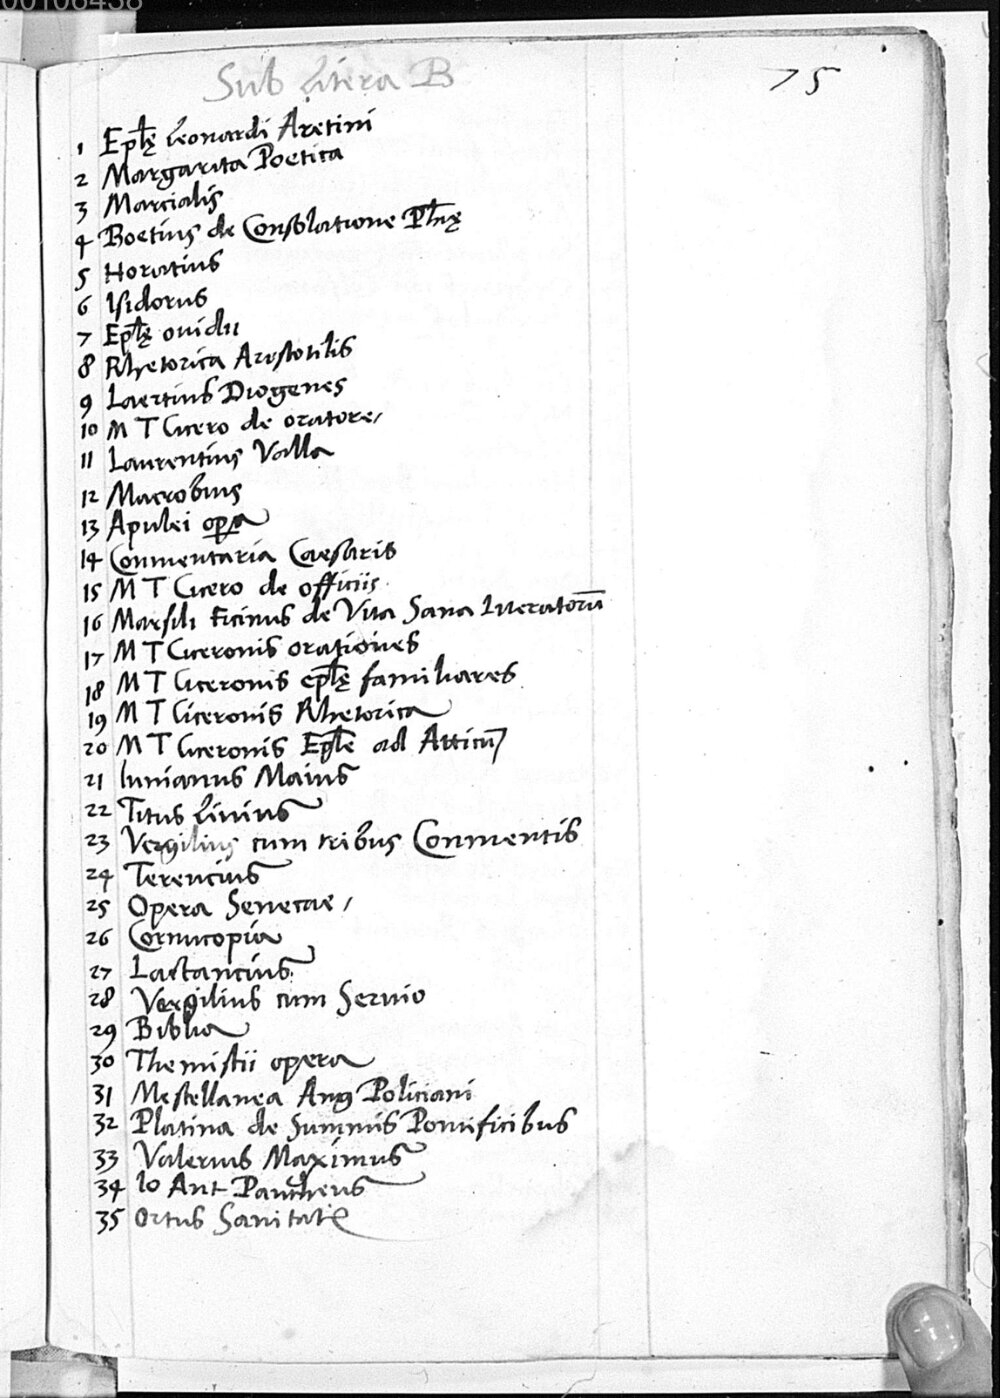 00106438
Sub Litera B
75
1 Epl̄ę Leonardi Aretini
2 Margarita Poetica
3 Marcialis
4 Boetius de Consolatione Ph̄ię
5 Horatius
6 Isidorus
7 Epl̄ę ovidii
8 Rhetorica Aristotilis
9 Laertius Diogenes
10 M T Cicero de oratore
11 Laurentius Valla
12 Macrobius
13 Apulei opa
14 Conmentaria Caesaris
15 M T Cicero de officiis
16 Marsili Ficinus de Vita Sana Literatorū
17 M T Ciceronis orationes
18 M T Ciceronis epl̄ę familiares
19 M T Ciceronis Rhetorica
20 M T Ciceronis Epl̄e ad Atticū
21 Iunianus Maius
22 Titus Livius
23 Vergilius cum tribus Conmentis
24 Terencius
25 Opera Senecae
26 Cornucopia
27 Lactancius
28 Vergilius cum Servio
29 Biblia
30 Themistii opera
31 Mestellanea Ang Policiani
32 Platina de Summis Pontificibus
33 Valerius Maximus
34 Io Ant Pantheus
35 Ortus Sanitatis